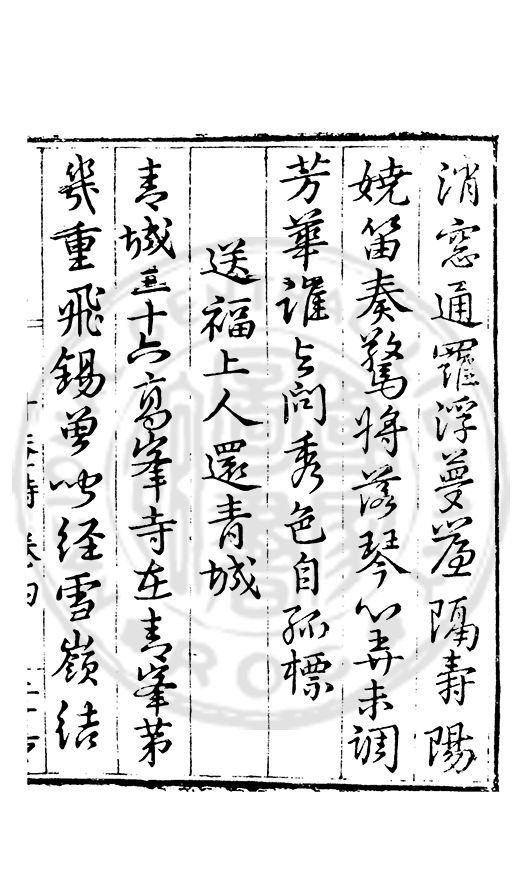 消窓通羅浮夢羞隔壽陽
嬈笛奏驚將落琴心弄未調
芳華誰与問秀色自孤標
送福上人還青城
青城三十六髙峯寺在青峯第
幾重飛錫曽吹経雪嶺結